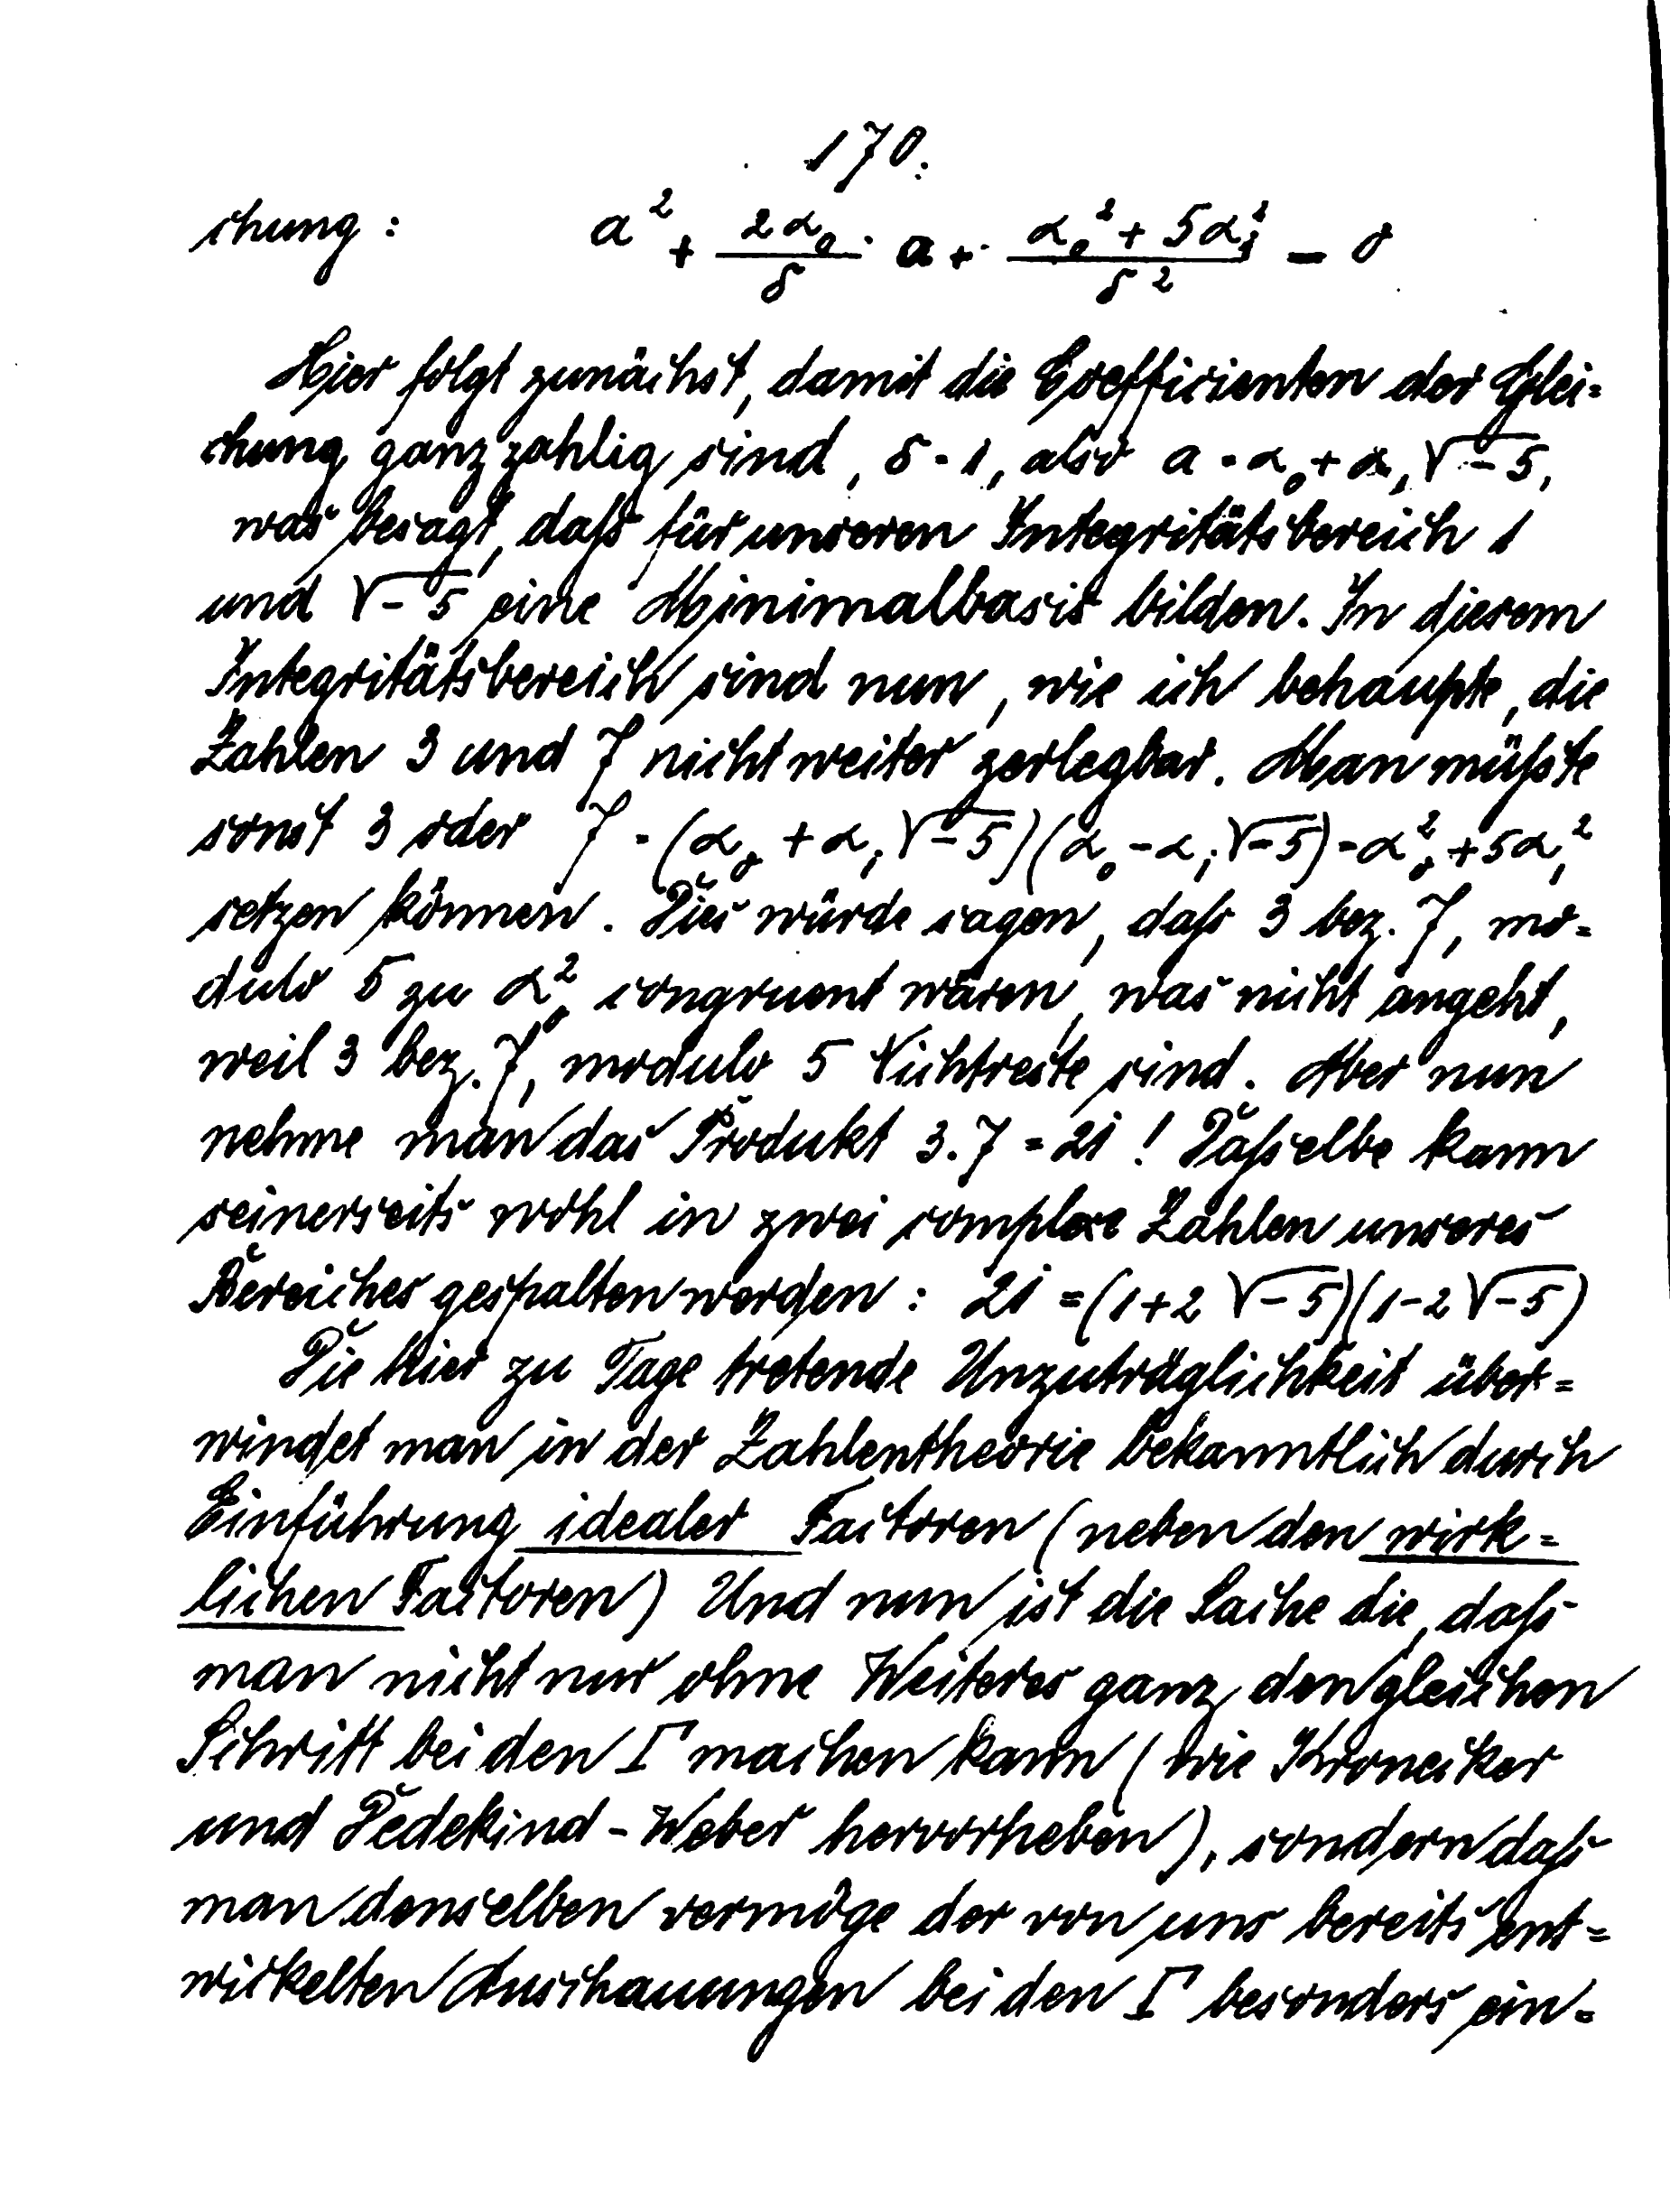 170.
chung: a² + 2α₀/δ · a + (α₀² + 5α₁²)/δ² = 0
Hier folgt zunächst, damit die Coefficienten der Glei=
chung ganzzahlig sind, δ = 1, also a = α₀ + α₁√-5,
was besagt, daß für unseren Integritätsbereich 1
und √-5 eine Minimalbasis bilden. In diesem
Integritätsbereich sind nun, wie ich behaupte, die
Zahlen 3 und 7 nicht weiter zerlegbar. Man müßte
sonst 3 oder 7 = (α₀ + α₁√-5)(α₀ - α₁√-5) = α₀² + 5α₁²
setzen können. Dies würde sagen, daß 3 bez. 7, mo=
dulo 5 zu α₀² congruent wären, was nicht angeht,
weil 3 bez. 7, modulo 5 Nichtreste sind. Aber nun
nehme man das Produkt 3.7 = 21! Daßselbe kann
seinerseits wohl in zwei complexe Zahlen unseres
Bereiches gespalten werden: 21 = (1+2√-5)(1-2√-5)
Die hier zu Tage tretende Unzuträglichkeit über=
windet man in der Zahlentheorie bekanntlich durch
Einführung idealer Factoren (neben den wirk=
lichen Factoren) Und nun ist die Sache die, daß
man nicht nur ohne Weiteres ganz den gleichen
Schritt bei den Γ machen kann (wie Kronecker
und Dedekind-Weber hervorheben), sondern daß
man denselben vermöge der von uns bereits ent=
wickelten Anschauungen bei den Γ besonders ein=